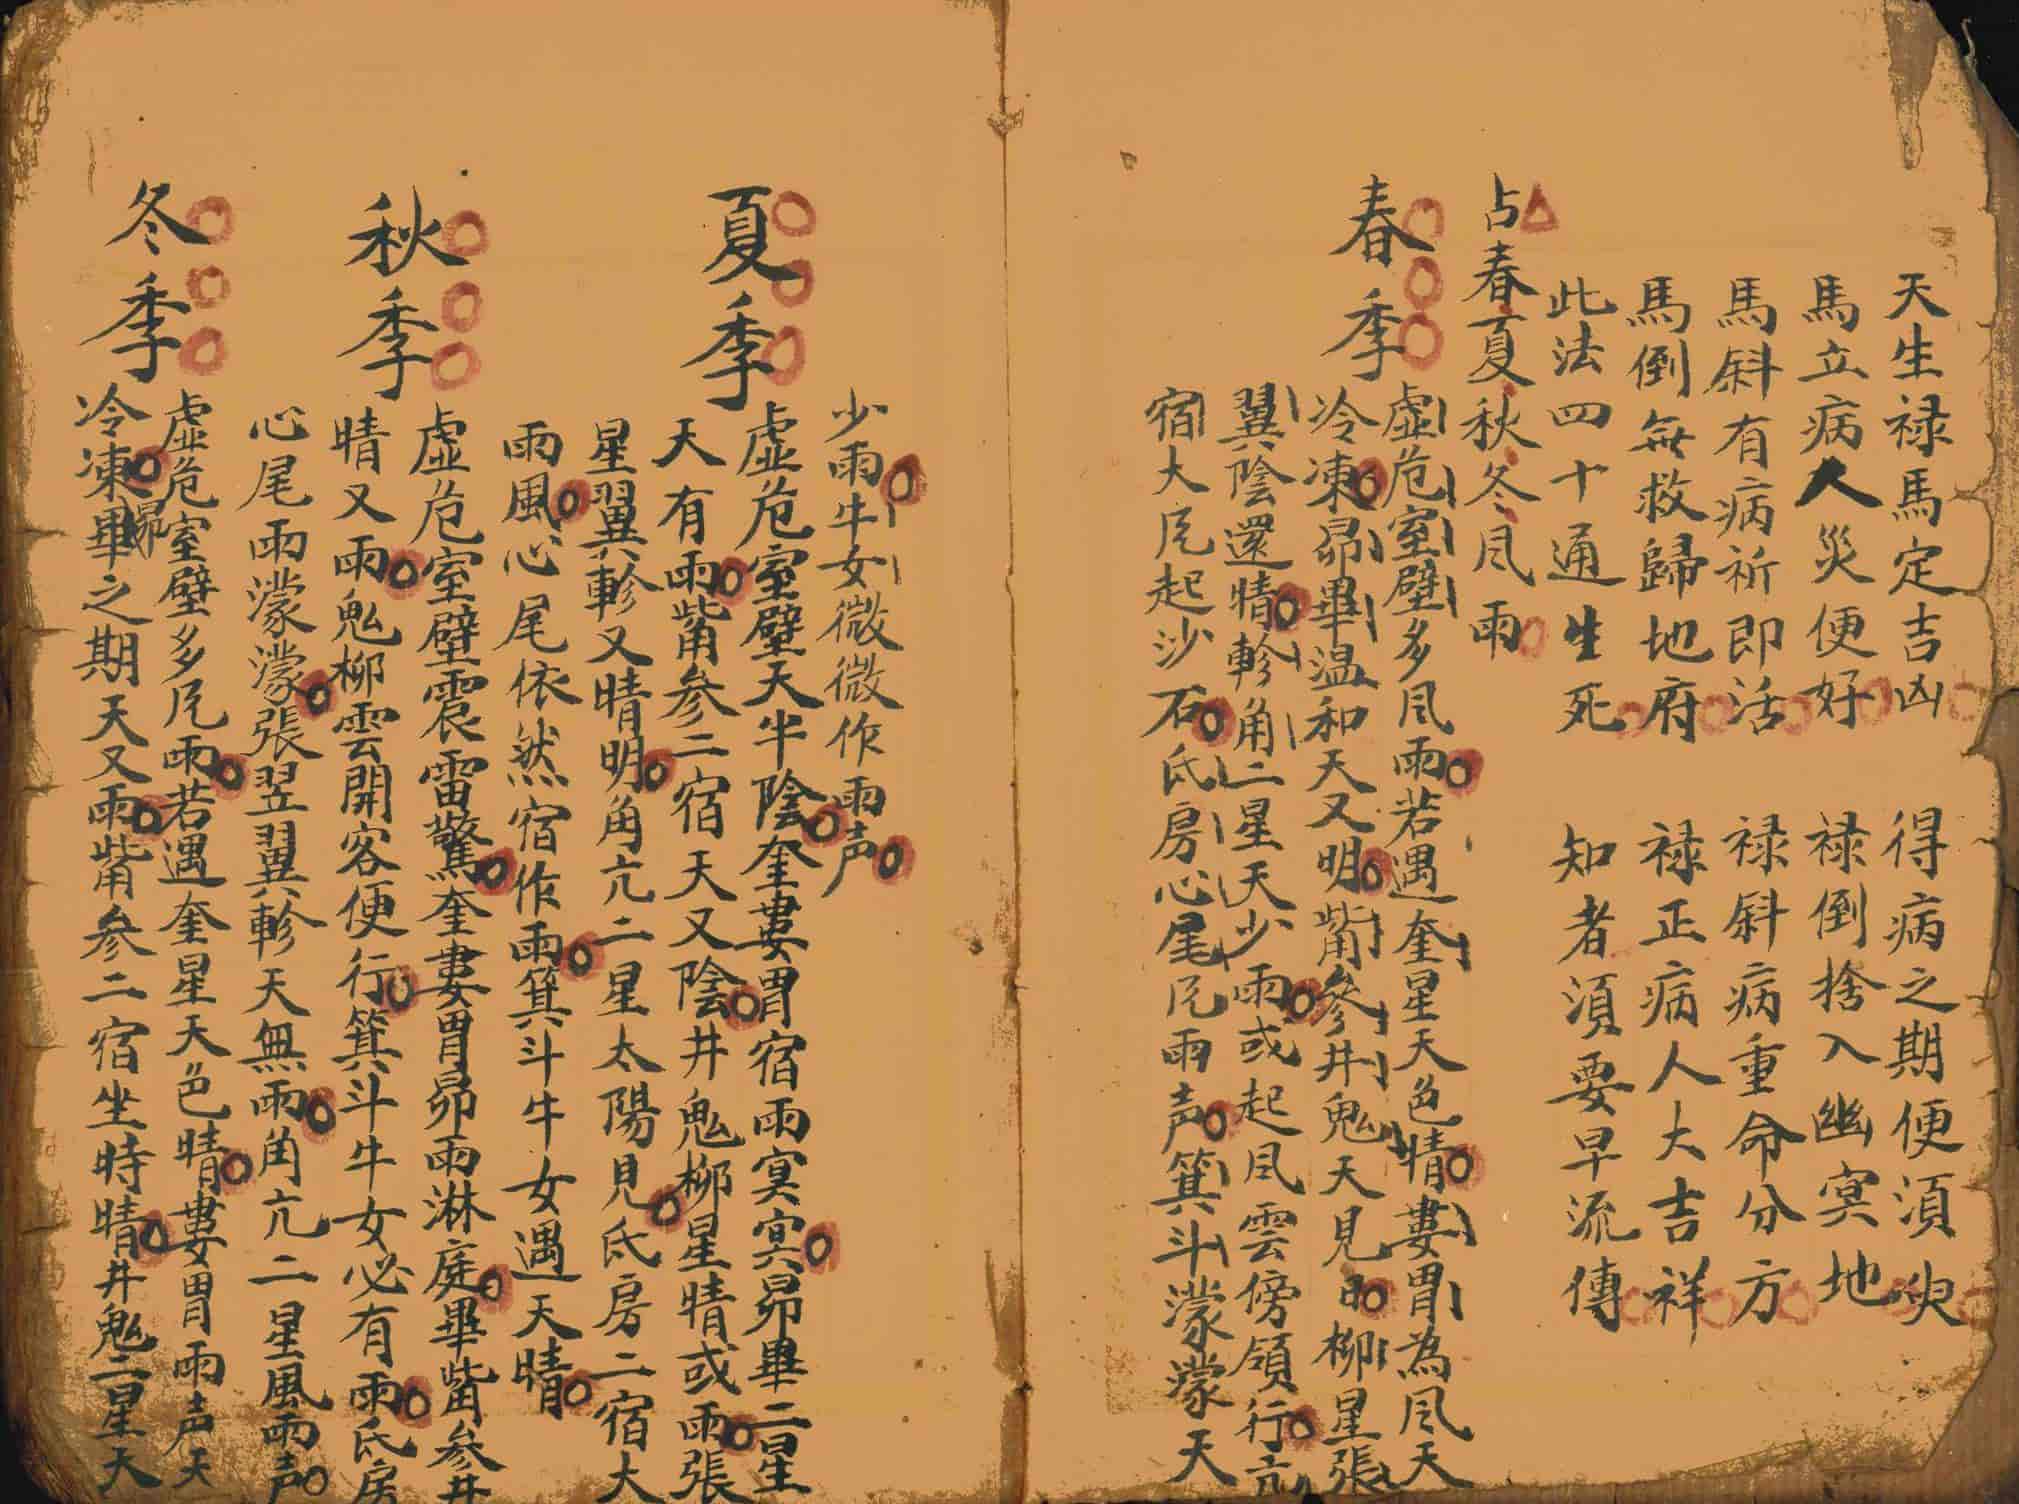 天生禄馬定吉凶　得病之期便須臾
馬立病人災便好　禄倒捨入幽冥地
馬斜有病祈即活　禄斜病重命分方
馬倒無救歸地府　禄正病人大吉祥
此法四十通生死　知者須要早流傳
占春夏秋冬风雨
春季
虛危室壁多风雨若遇奎星天色晴婁胃為风天
冷凍昴畢温和天又明觜參井鬼天見日柳星張
翼陰還晴軫角二星天少雨或起风雲傍領行亢
宿大风起沙石氐房心尾风雨声箕斗濛濛天
少雨牛女微微作雨声
夏季
虛危室壁天半陰奎婁胃宿雨冥冥昴畢二星
天有雨觜參二宿天又陰井鬼柳星晴或雨張
星翼軫又晴明角亢二星太陽見氐房二宿大
雨風心尾依然宿作雨箕斗牛女遇天晴
秋季
虛危室壁震雷驚奎婁胃昴雨淋庭畢觜參井
晴又雨鬼柳雲開客便行箕斗牛女必有雨氐房
心尾雨濛濛張翌翼軫天無雨角亢二星風雨声
冬季
虛危室壁多风雨若遇奎星天色晴婁胃雨声天
冷凍昴畢之期天又雨觜參二宿坐時晴井鬼二星天